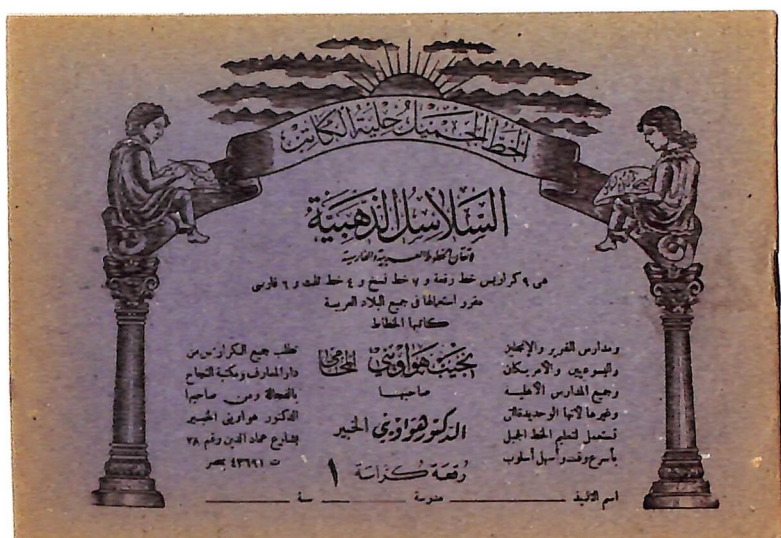 الخط الجميل حلية الكاتب
السلاسل الذهبية
لاتقان الخطوط العربية والفارسية
هى ٩ كراريس خط رقعة و ٧ خط نسخ و ٤ خط ثلث و ٦ فارسى
مقرر استعمالها فى جميع البلاد العربية
كاتبها الخطاط
نجيب هواويني المحامي
صاحبها
الدكتور هواويني الخبير
رقعة كراسة ١
ومدارس الفرير والإنجليز
واليسوعيين والأمريكان
وجميع المدارس الأهلية
وغيرها لأنها الوحيدة التى
تستعمل لتعليم الخط الجميل
بأسرع وقت وأسهل أسلوب
تطلب جميع الكراريس من
دار المعارف ومكتبة النجاح
بالفجالة ومن صاحبها
الدكتور هواوينى الخبير
بشارع عماد الدين رقم ٢٨
ت ٤٣٦٩١ بمصر
اسم التلميذ مدرسة سنة